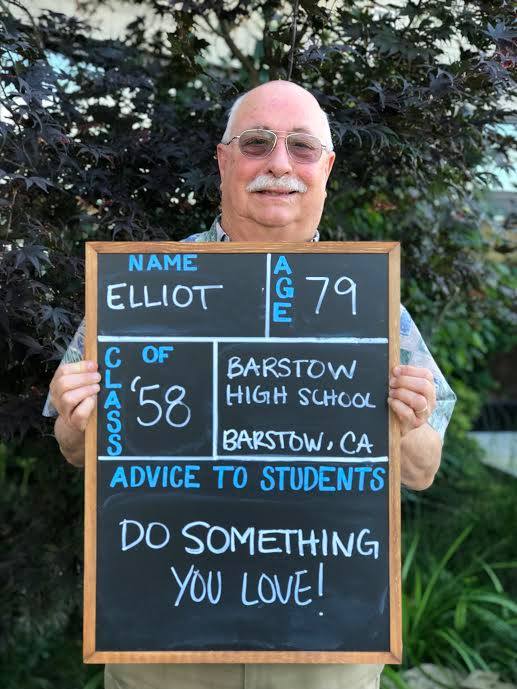 NAME
ELLIOT
AGE
79
CLASS
OF
'58
BARSTOW
HIGH SCHOOL
BARSTOW, CA
ADVICE TO STUDENTS
DO SOMETHING
YOU LOVE!